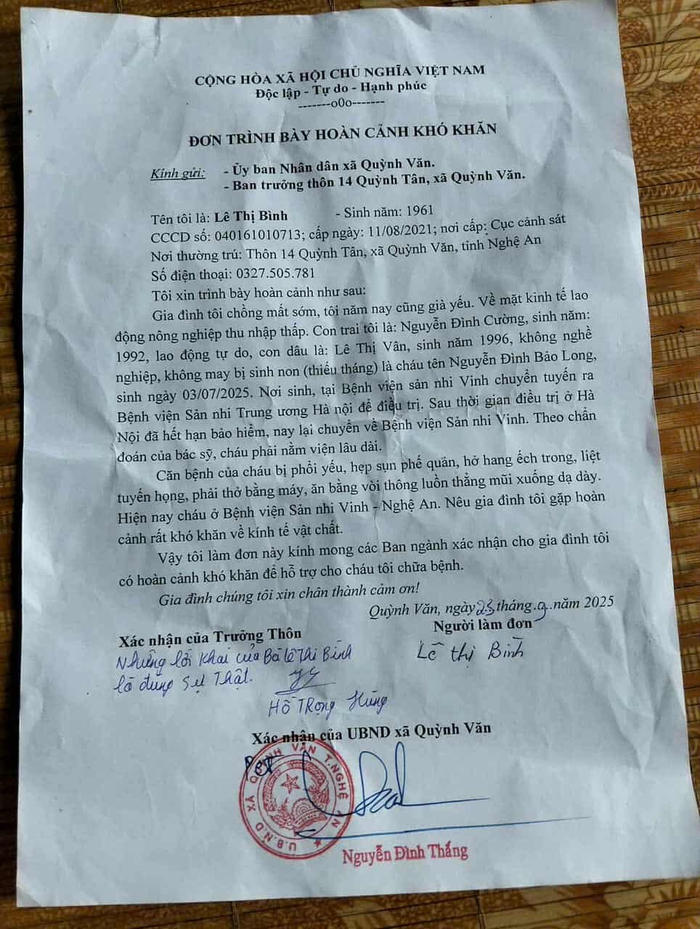 CỘNG HÒA XÃ HỘI CHỦ NGHĨA VIỆT NAM
Độc lập - Tự do - Hạnh phúc
-------o0o-------
ĐƠN TRÌNH BÀY HOÀN CẢNH KHÓ KHĂN
Kính gửi: - Ủy ban Nhân dân xã Quỳnh Văn.
- Ban trưởng thôn 14 Quỳnh Tân, xã Quỳnh Văn.
Tên tôi là: Lê Thị Bình - Sinh năm: 1961
CCCD số: 040161010713; cấp ngày: 11/08/2021; nơi cấp: Cục cảnh sát
Nơi thường trú: Thôn 14 Quỳnh Tân, xã Quỳnh Văn, tỉnh Nghệ An
Số điện thoại: 0327.505.781
Tôi xin trình bày hoàn cảnh như sau:
Gia đình tôi chồng mất sớm, tôi năm nay cũng già yếu. Về mặt kinh tế lao
động nông nghiệp thu nhập thấp. Con trai tôi là: Nguyễn Đình Cường, sinh năm:
1992, lao động tự do, con dâu là: Lê Thị Vân, sinh năm 1996, không nghề
nghiệp, không may bị sinh non (thiếu tháng) là cháu tên Nguyễn Đình Bảo Long,
sinh ngày 03/07/2025. Nơi sinh, tại Bệnh viện sản nhi Vinh chuyển tuyến ra
Bệnh viện Sản nhi Trung ương Hà nội để điều trị. Sau thời gian điều trị ở Hà
Nội đã hết hạn bảo hiểm, nay lại chuyển về Bệnh viện Sản nhi Vinh. Theo chẩn
đoán của bác sỹ, cháu phải nằm viện lâu dài.
Căn bệnh của cháu bị phổi yếu, hẹp sụn phế quản, hở hang ếch trong, liệt
tuyến họng, phải thở bằng máy, ăn bằng vòi thông luồn thẳng mũi xuống dạ dày.
Hiện nay cháu ở Bệnh viện Sản nhi Vinh - Nghệ An. Nêu gia đình tôi gặp hoàn
cảnh rất khó khăn về kinh tế vật chất.
Vậy tôi làm đơn này kính mong các Ban ngành xác nhận cho gia đình tôi
có hoàn cảnh khó khăn để hỗ trợ cho cháu tôi chữa bệnh.
Gia đình chúng tôi xin chân thành cảm ơn!
Quỳnh Văn, ngày 23 tháng 9 năm 2025
Xác nhận của Trưởng Thôn Người làm đơn
Những lời khai của Bà Lê Thị Bình Lê Thị Bình
là đúng Sự Thật.
Hồ Trọng Hùng
Xác nhận của UBND xã Quỳnh Văn
U.B.N.D XÃ QUỲNH VĂN T.NGHỆ AN
Nguyễn Đình Thắng